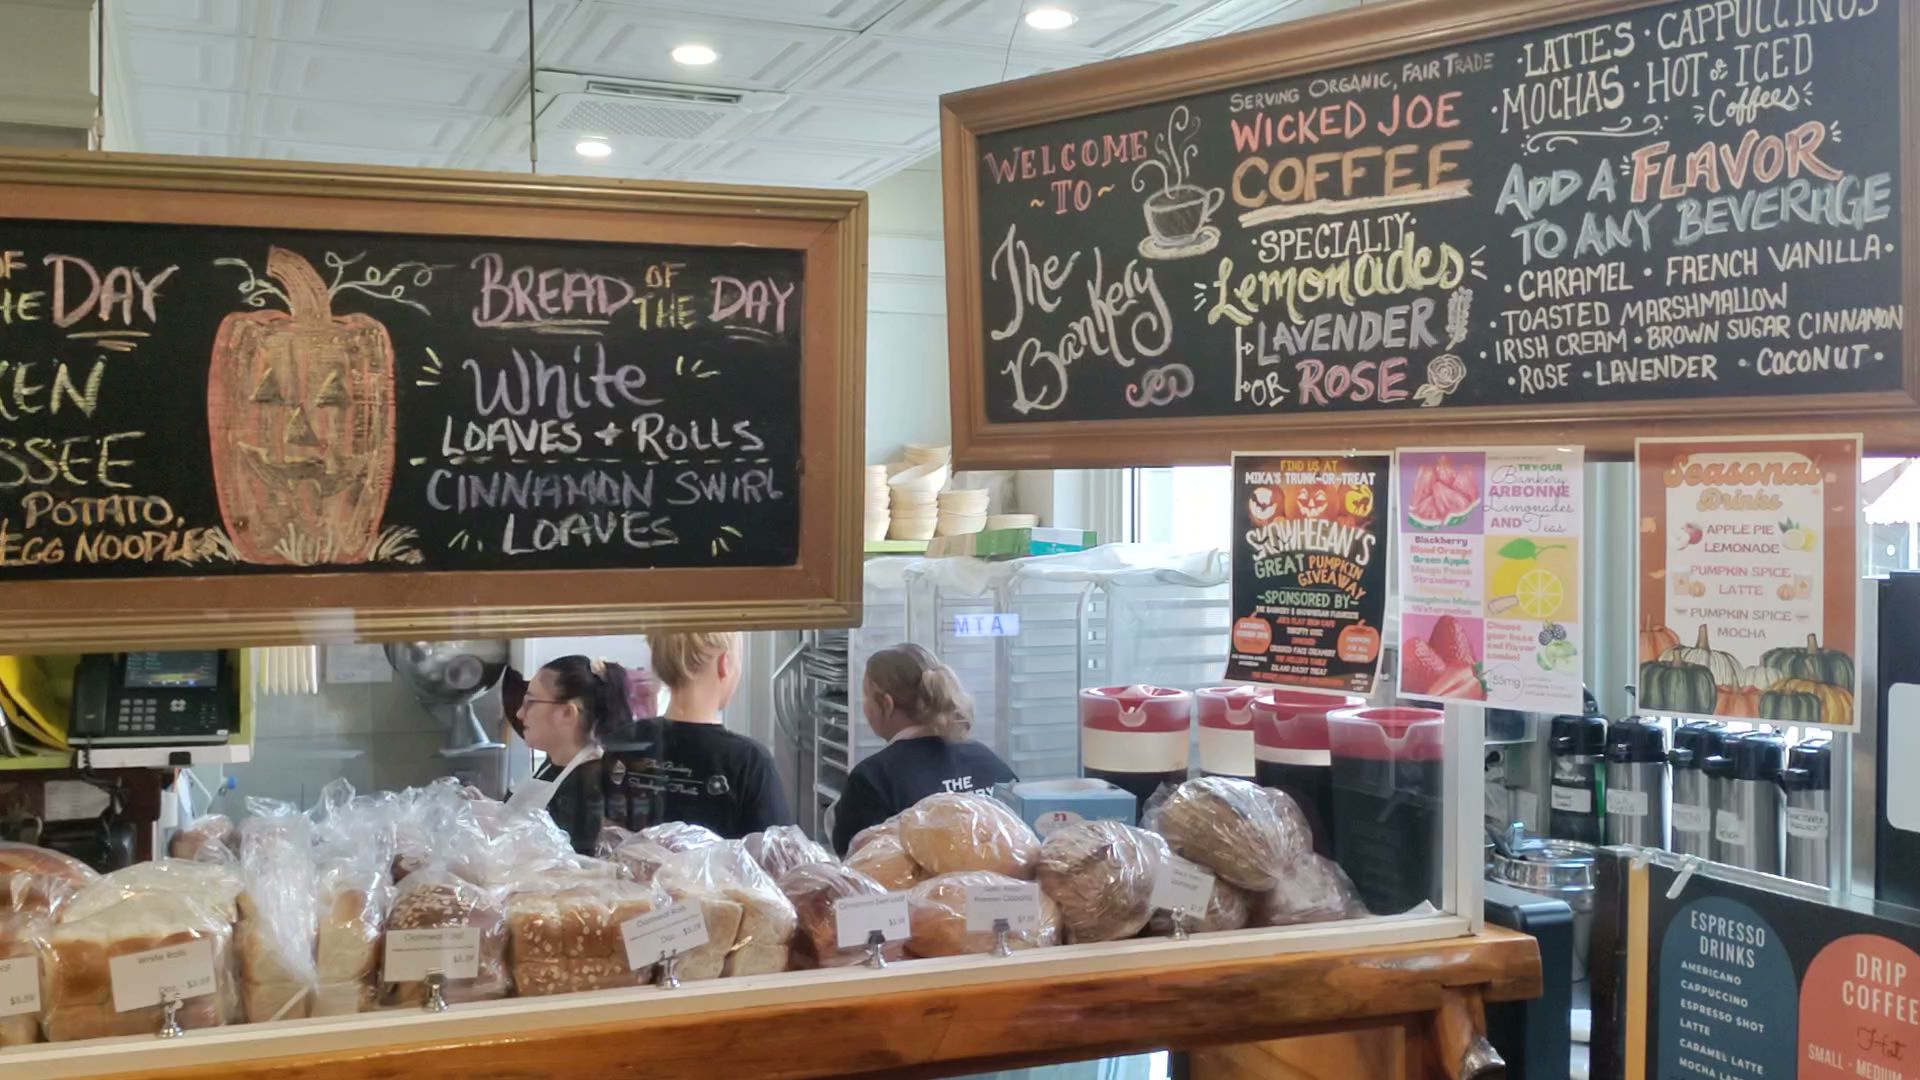 OF
THE DAY
KEN
SSEE
POTATO,
EGG NOODLES
BREAD OF THE DAY
White
LOAVES + ROLLS
CINNAMON SWIRL
LOAVES
WELCOME
~TO~
The
Bankery
SERVING ORGANIC, FAIR TRADE
WICKED JOE
COFFEE
·SPECIALTY·
Lemonades
LAVENDER
OR ROSE
·LATTES·CAPPUCCINOS
·MOCHAS·HOT & ICED
Coffees
ADD A FLAVOR
TO ANY BEVERAGE
·CARAMEL·FRENCH VANILLA·
·TOASTED MARSHMALLOW
·IRISH CREAM·BROWN SUGAR CINNAMON
·ROSE·LAVENDER·COCONUT·
FIND US AT
MIKA'S TRUNK-OR-TREAT
SKOWHEGAN'S
GREAT PUMPKIN
GIVEAWAY
-SPONSORED BY-
THE BANKERY & SKOWHEGAN FLEURISTE
TRY OUR
Bankery
ARBONNE
Lemonades
AND Teas
Blackberry
Blood Orange
Green Apple
Mango Peach
Strawberry
Watermelon
Choose
your base
and flavor
combo!
55mg
Seasonal
Drinks
APPLE PIE
LEMONADE
PUMPKIN SPICE
LATTE
PUMPKIN SPICE
MOCHA
MTA
THE
White Rolls
Doz.
Oatmeal Rolls
Doz.
Cinnamon Swirl Loaf
ESPRESSO
DRINKS
AMERICANO
CAPPUCCINO
ESPRESSO SHOT
LATTE
CARAMEL LATTE
MOCHA LATTE
DRIP
COFFEE
Hot
SMALL - MEDIUM